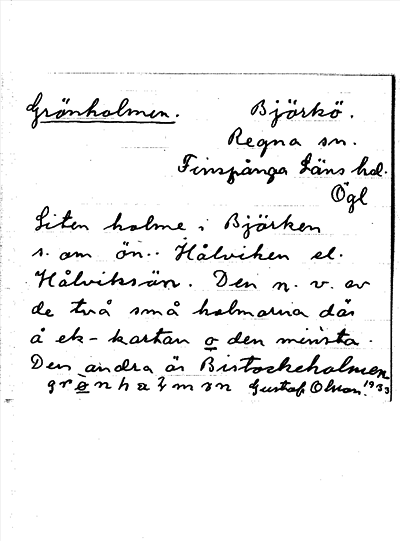 Grönholmen. Björkö.
Regna sn.
Finspånga Läns hd.
Ögl
Liten holme i Björken
s. om ön.. Hålviken el.
Hålviksön. Den n. v. av
de två små holmarna där
å ek-kartan o den minsta.
Den andra är Bistockeholmen
Gustaf Olson. 1933